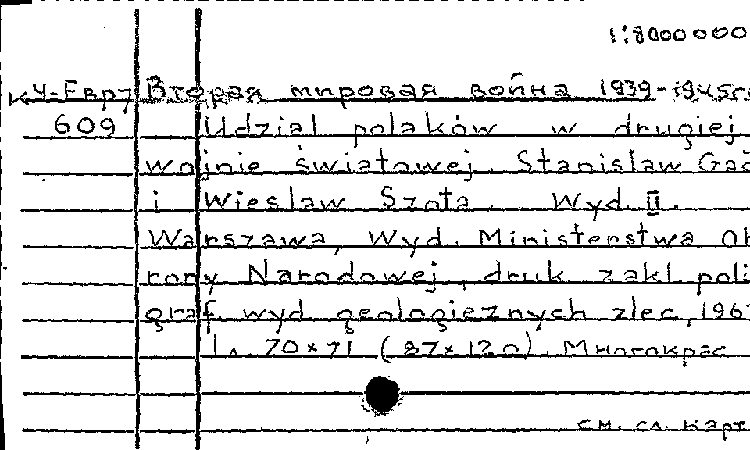 1:8000000
К У-Евр7 Вторая мировая война 1939-1945гг
609 Udzial polaków w drugiej
wojnie światowej. Stanislaw Gać
i Wieslaw Szota. Wyd. II.
Warszawa, Wyd. Ministerstwa Ob
rony Narodowej, druk zakl poli
graf. wyd geologicznych zlec, 196
1л. 70×71 (87×120). Многокрас
см. сл. карт